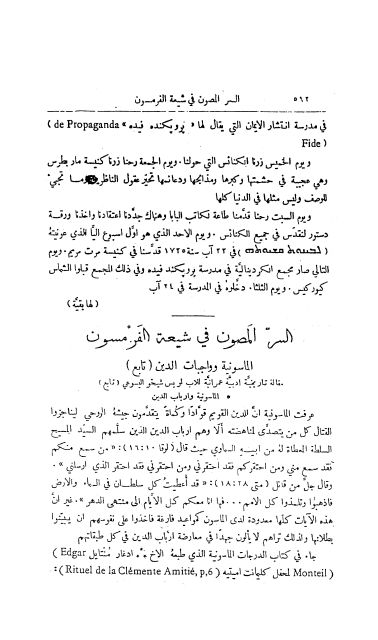 ٥٦٢ السر المصون في شيعة الفرمسون
في مدرسة انتشار الايمان التي يقال لها « پروپكنده فيده » de Propaganda )
Fide )
ويوم الخميس زرنا الكنائس التي حولنا. ويوم الجمعة رحنا زرنا كنيسة مار بطرس
وهي عجيبة في حشمتها وكبرها ومذابحها ودعائمها تحيّر عقول الناظرين وما تجي
للوصف وليس مثلها في الدنيا كلها
ويوم السبت رحنا قدّمنا طاعة لكاتب البابا وهناك جدّدنا اعتقادنا واخذنا ورقة
دستور لنقدّس في جميع الكنائس. ويوم الاحد الذي هو اوّل اسبوع
في ٢٢ آب سنة ١٧٢٥ قدّسنا في كنيسة مرت مريم. ويوم
التالي صار مجمع الكردينالية في مدرسة پروپكنده فيده وفي ذلك المجمع قبلوا الشماس
كوركيس. ويوم الثلثا. دخلوه في المدرسة في ٢٤ آب
( لها بقيّة )
السرّ المصون في شيعة الفَرْمسون
الماسونية وواجبات الدين ( تابع )
مقالة تاريخيَّة ادبيَّة عمرانيَّة للاب لويس شيخو اليسوعي ( تابع )
* الماسونية وارباب الدين
عرفت الماسونية انَّ للدين القويم قوَّادًا وكُماة يتقدّمون جيشهُ الروحي ليناجزوا
القتال كل من يتصدَّى لمناهضته ألا وهم ارباب الدين الذين سلَّمهم السيّد المسيح
السلطة المعطاة لهُ من ابيه السماوي حيث قال ( لوقا ١٦:١٠ ): « من سمع منكم
فقد سمع مني ومن احتقركم فقد احتقرني ومن احتقرني فقد احتقر الذي ارسلني ».
وقال جلّ من قائل ( متى ١٨:٢٨ ): « قد أُعطيتُ كل سلطان في السماء والارض
فاذهبوا وتلمذوا كل الامم . . . فها انا معكم كل الايام الى منتهى الدهر ». غير انَّ
هذه الآيات كلَّها معدودة لدى الماسون كمواعيد فارغة فاخذوا على نفوسهم ان يبيّنوا
بطلانها ولذلك تراهم لا يألون جهدًا في معارضة ارباب الدين في كل طبقاتهم
جاء في كتاب الدرجات الماسونية الذي طبعهُ الاخ ∴ ادغار مُنتايل Edgar )
Monteil ) لمحفل كليانت اميتيه ( Rituel de la Clémente Amitié, p,6 ):